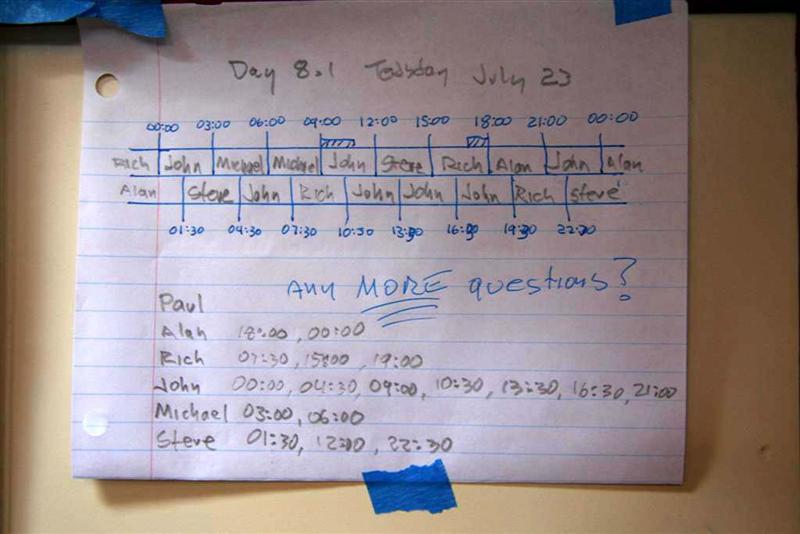 Day 8.1 Tousday July 23
00:00 03:00 06:00 09:00 12:00 15:00 18:00 21:00 00:00
Rich John Michael Michael John Steve Rich Alan John Alan
Alan Steve John Rich John John John Rich Steve
01:30 04:30 07:30 10:30 13:30 16:30 19:30 22:30
Any MORE questions?
Paul
Alan 18:00, 00:00
Rich 07:30, 15:00, 19:00
John 00:00, 04:30, 09:00, 10:30, 13:30, 16:30, 21:00
Michael 03:00, 06:00
Steve 01:30, 12:00, 22:30